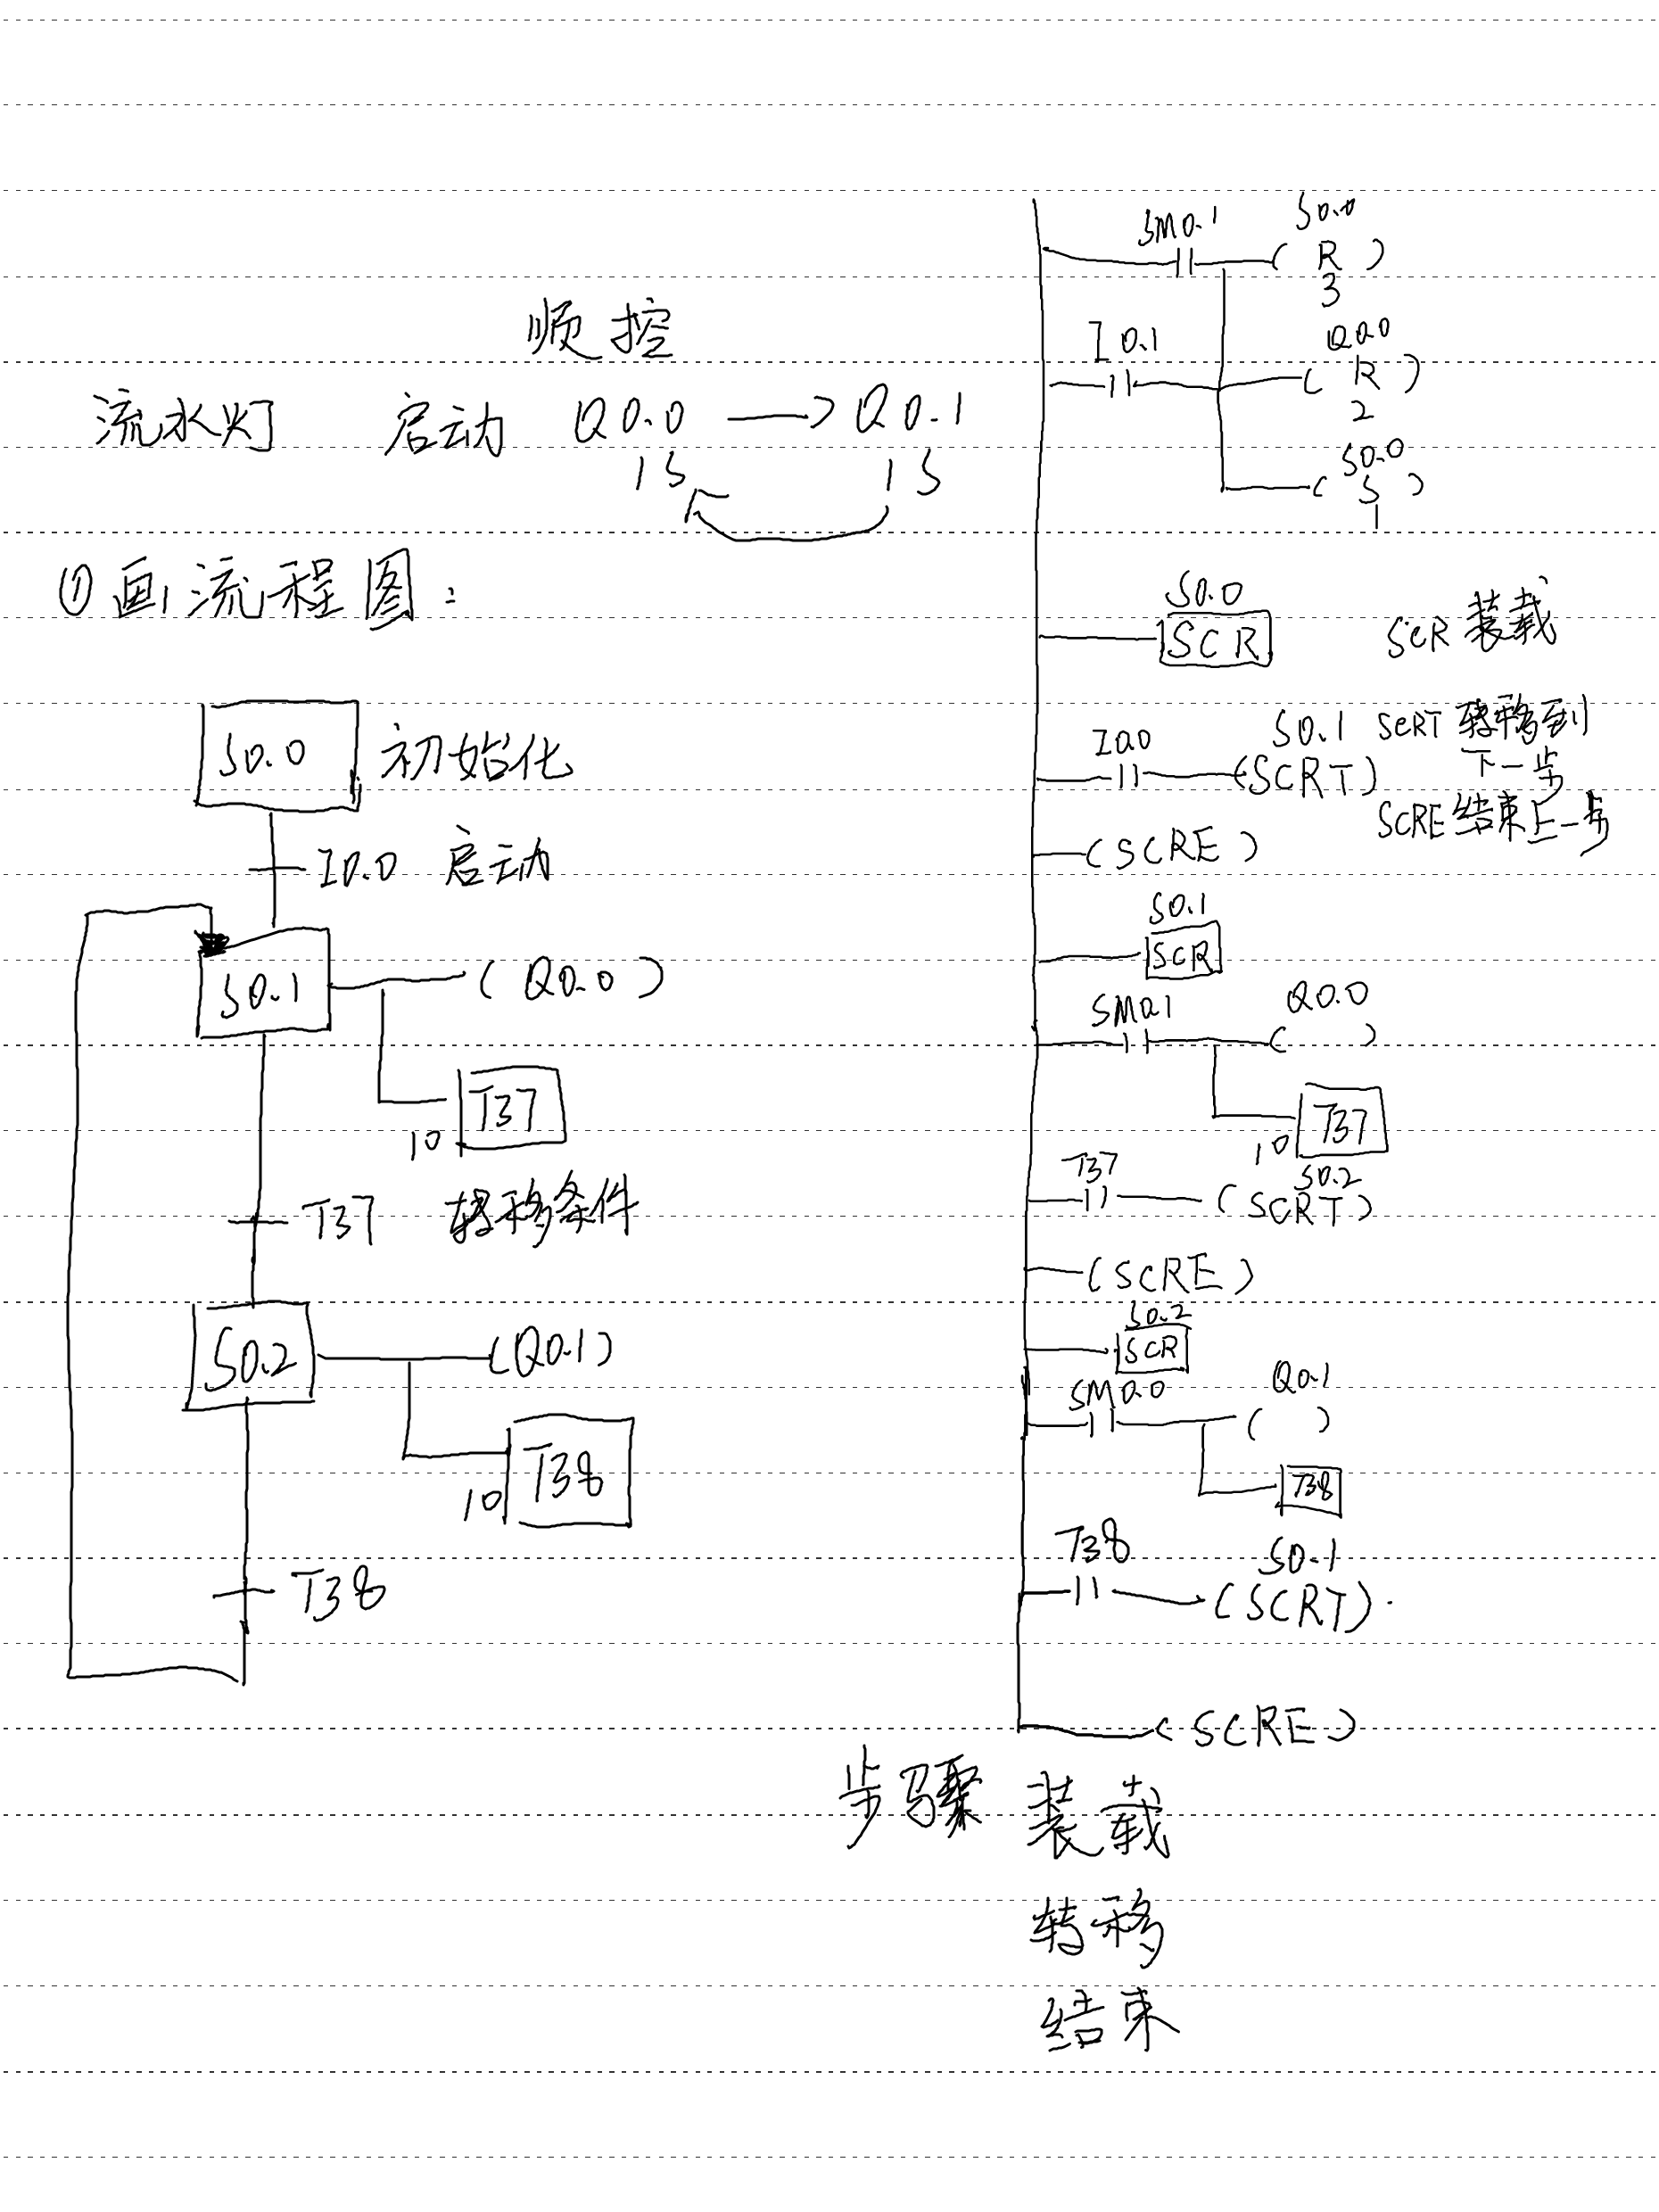 顺控
流水灯 启动 Q0.0 → Q0.1
1S 1S
①画流程图：
S0.0 初始化
I0.0 启动
S0.1 (Q0.0)
10 T37
T37 转移条件
S0.2 (Q0.1)
10 T38
T38
SM0.1 S0.0
( R )
3
I0.1 Q0.0
( R )
2
S0.0
( S )
1
S0.0
SCR SCR 装载
I0.0 S0.1 SCRT 转移到
(SCRT) 下一步
SCRE 结束上一步
(SCRE)
S0.1
SCR
SM0.1 Q0.0
( )
10 T37
T37 S0.2
(SCRT)
(SCRE)
S0.2
SCR
SM0.0 Q0.1
( )
T38
T38 S0.1
(SCRT).
(SCRE)
步骤 装载
转移
结束